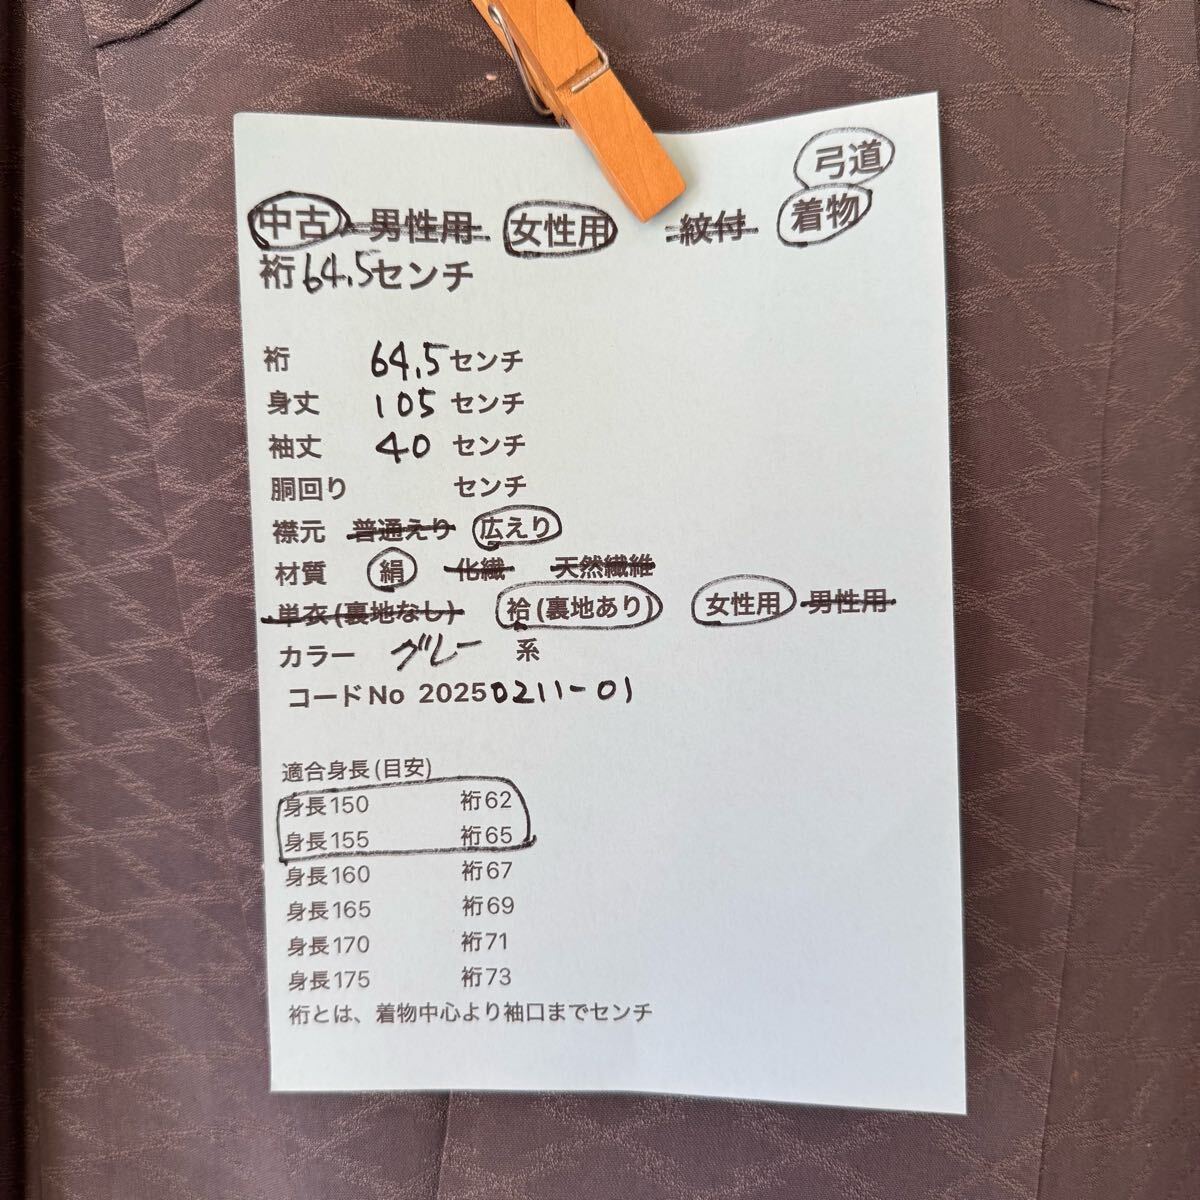 弓道
中古 男性用 女性用 紋付 着物
裄64.5センチ
裄 64.5センチ
身丈 105 センチ
袖丈 40 センチ
胴回り センチ
襟元 普通えり 広えり
材質 絹 化繊 天然繊維
単衣(裏地なし) 袷(裏地あり) 女性用 男性用
カラー グレー 系
コードNo 20250211-01
適合身長(目安)
身長150 裄62
身長155 裄65
身長160 裄67
身長165 裄69
身長170 裄71
身長175 裄73
裄とは、着物中心より袖口までセンチ